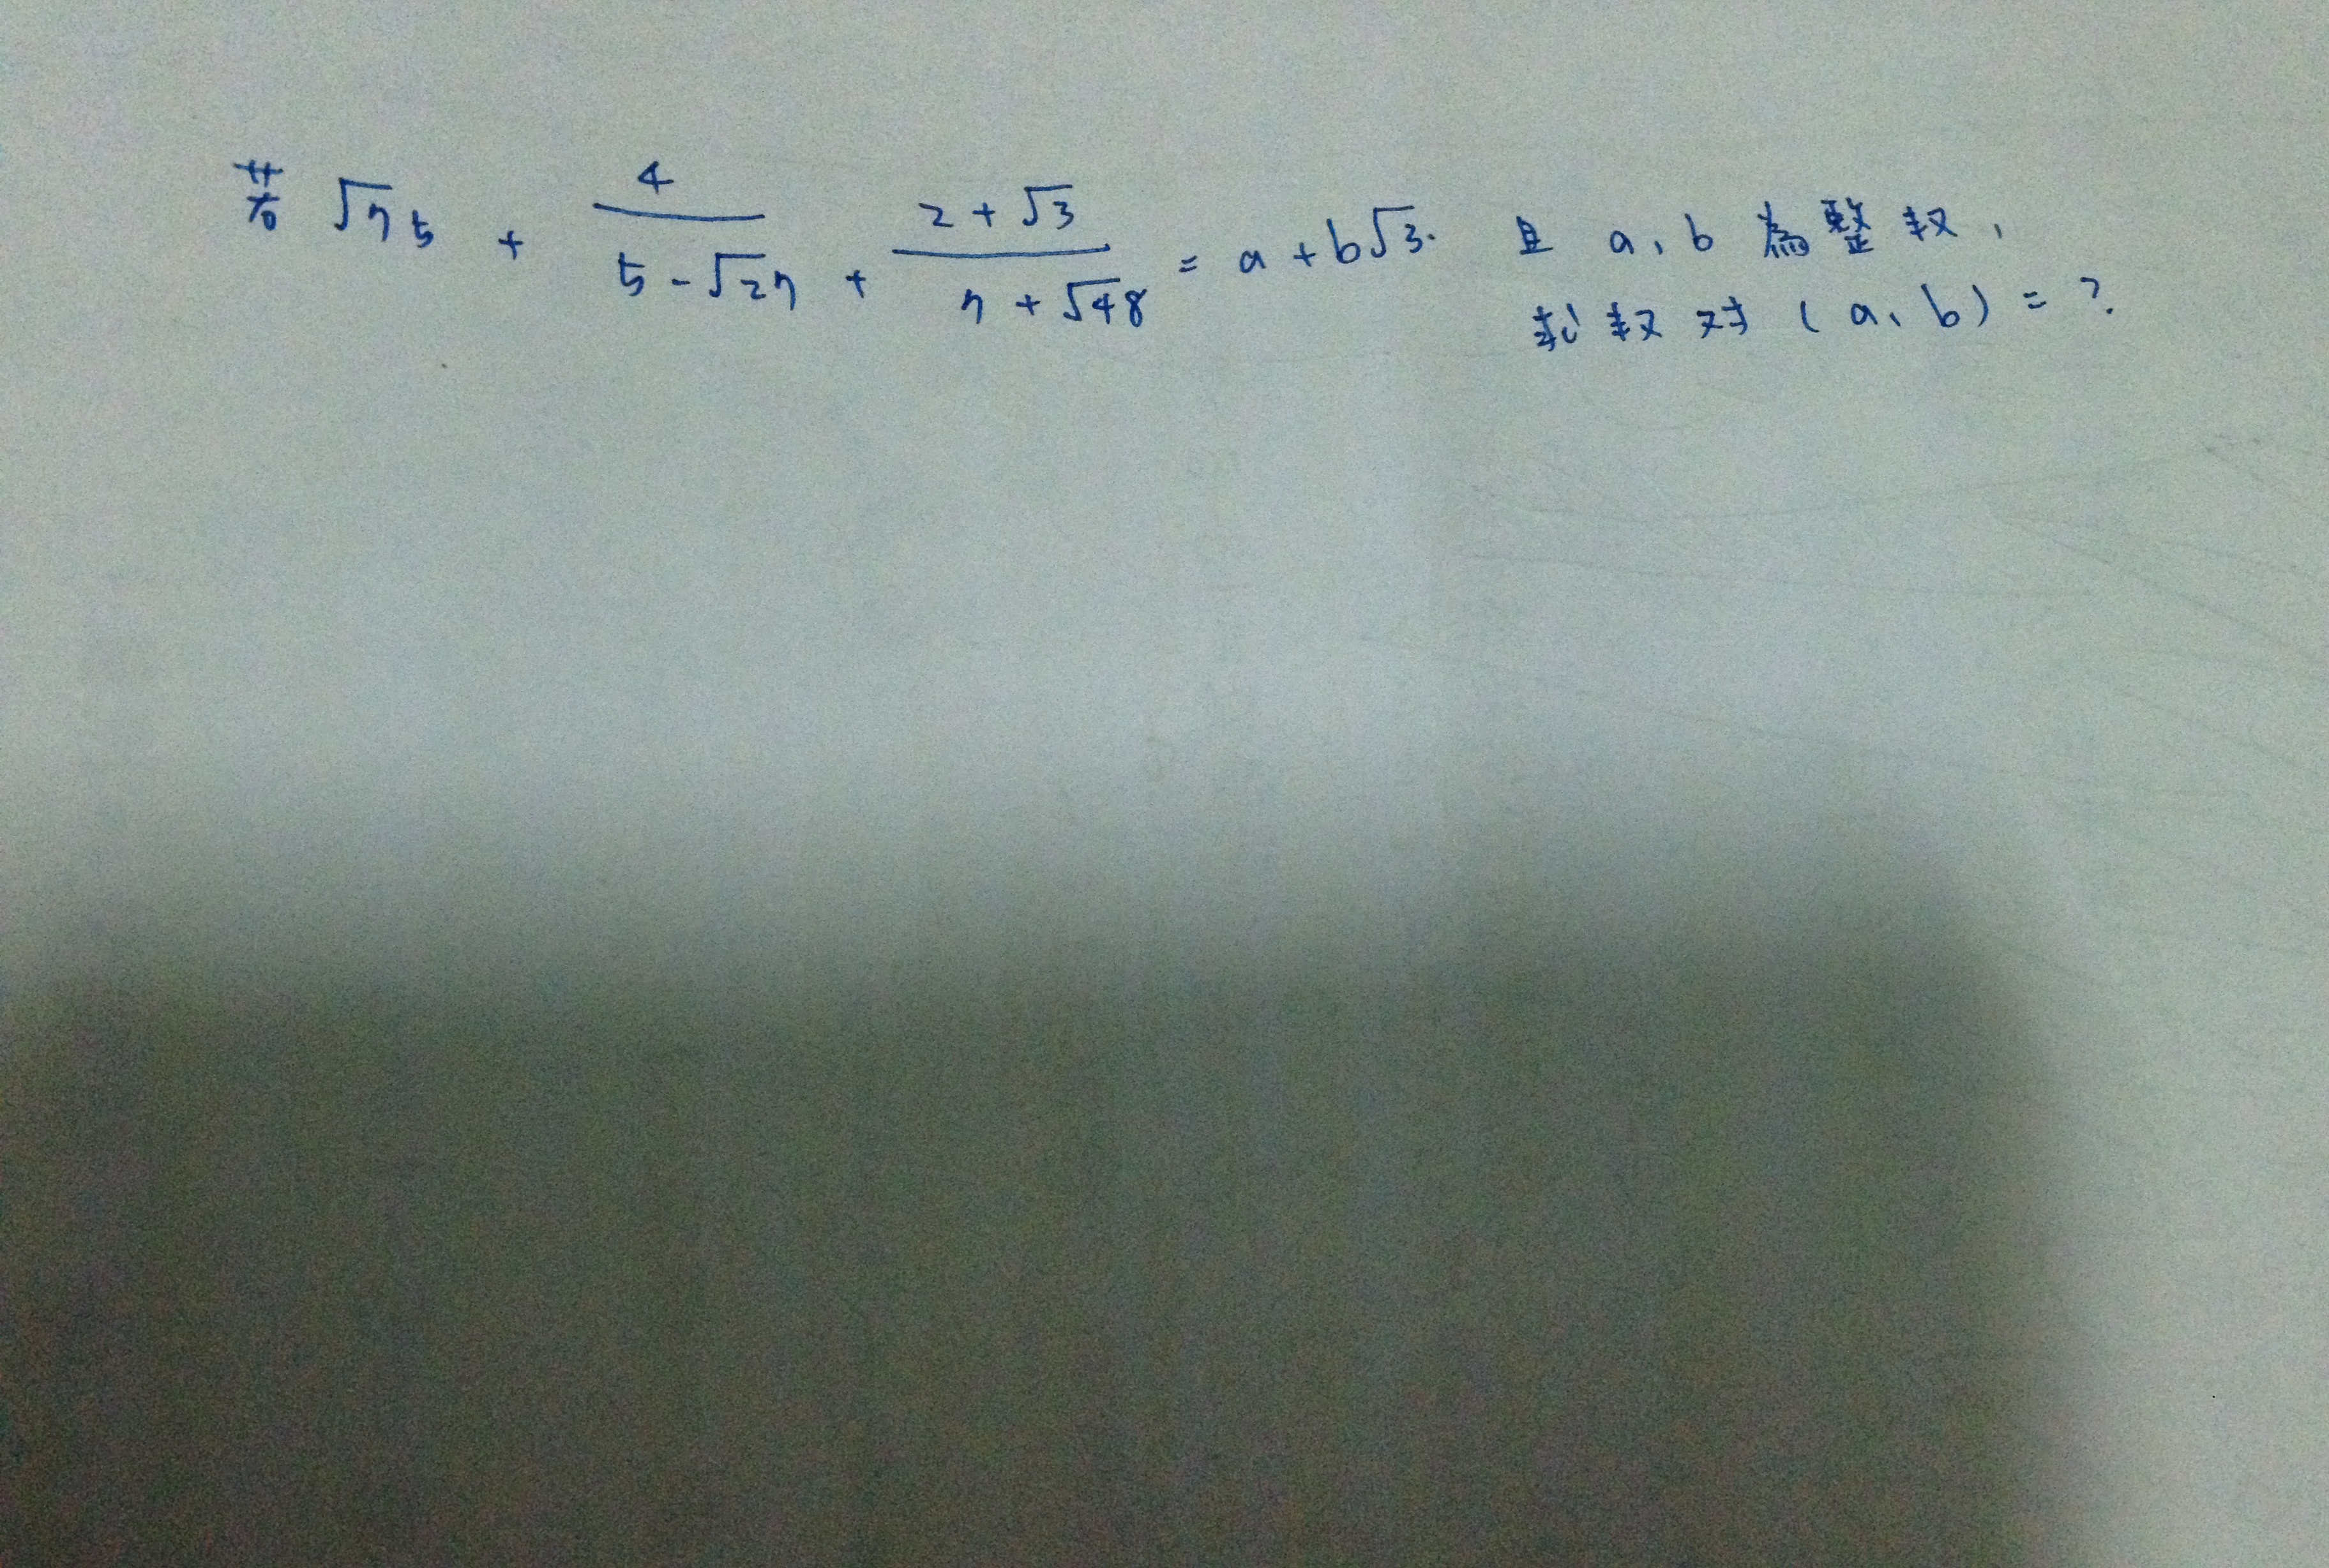 若 √75 + 4/(5-√27) + (2+√3)/(7+√48) = a+b√3. 且 a、b 為整数,
求数对 (a、b) = ?